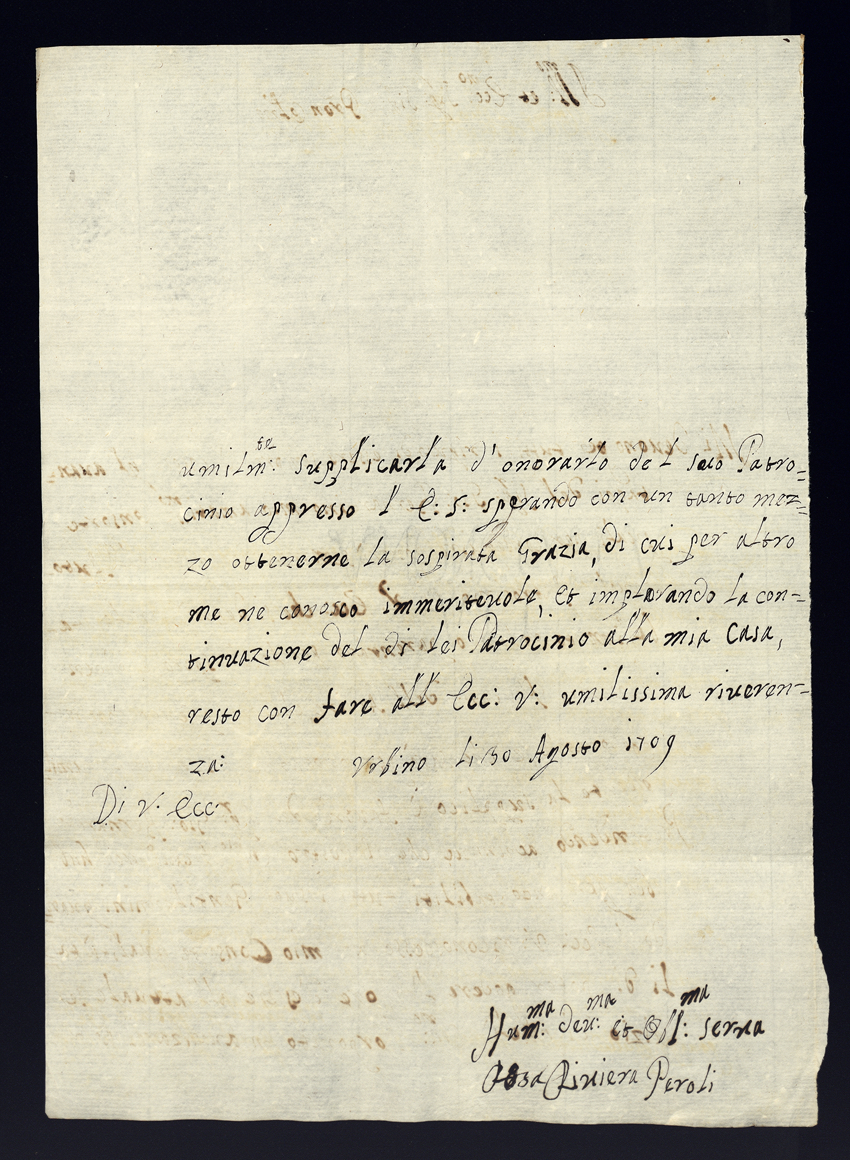 umilm.te supplicarla d'onorarlo del suo Patro-
cinio appresso l'E: S: sperando con un tanto mez-
zo ottenerne la sospirata Grazia, di cui per altro
me ne conosco immeriteuole, et implorando la con-
tinuazione del di lei Patrocinio alla mia Casa,
resto con fare all'Ecc: V: umilissima riueren-
za: Urbino li 30 Agosto 1709
Di V. Ecc:
Hum:ma deu:ma et Obl:ma serua
Riuiera Peroli